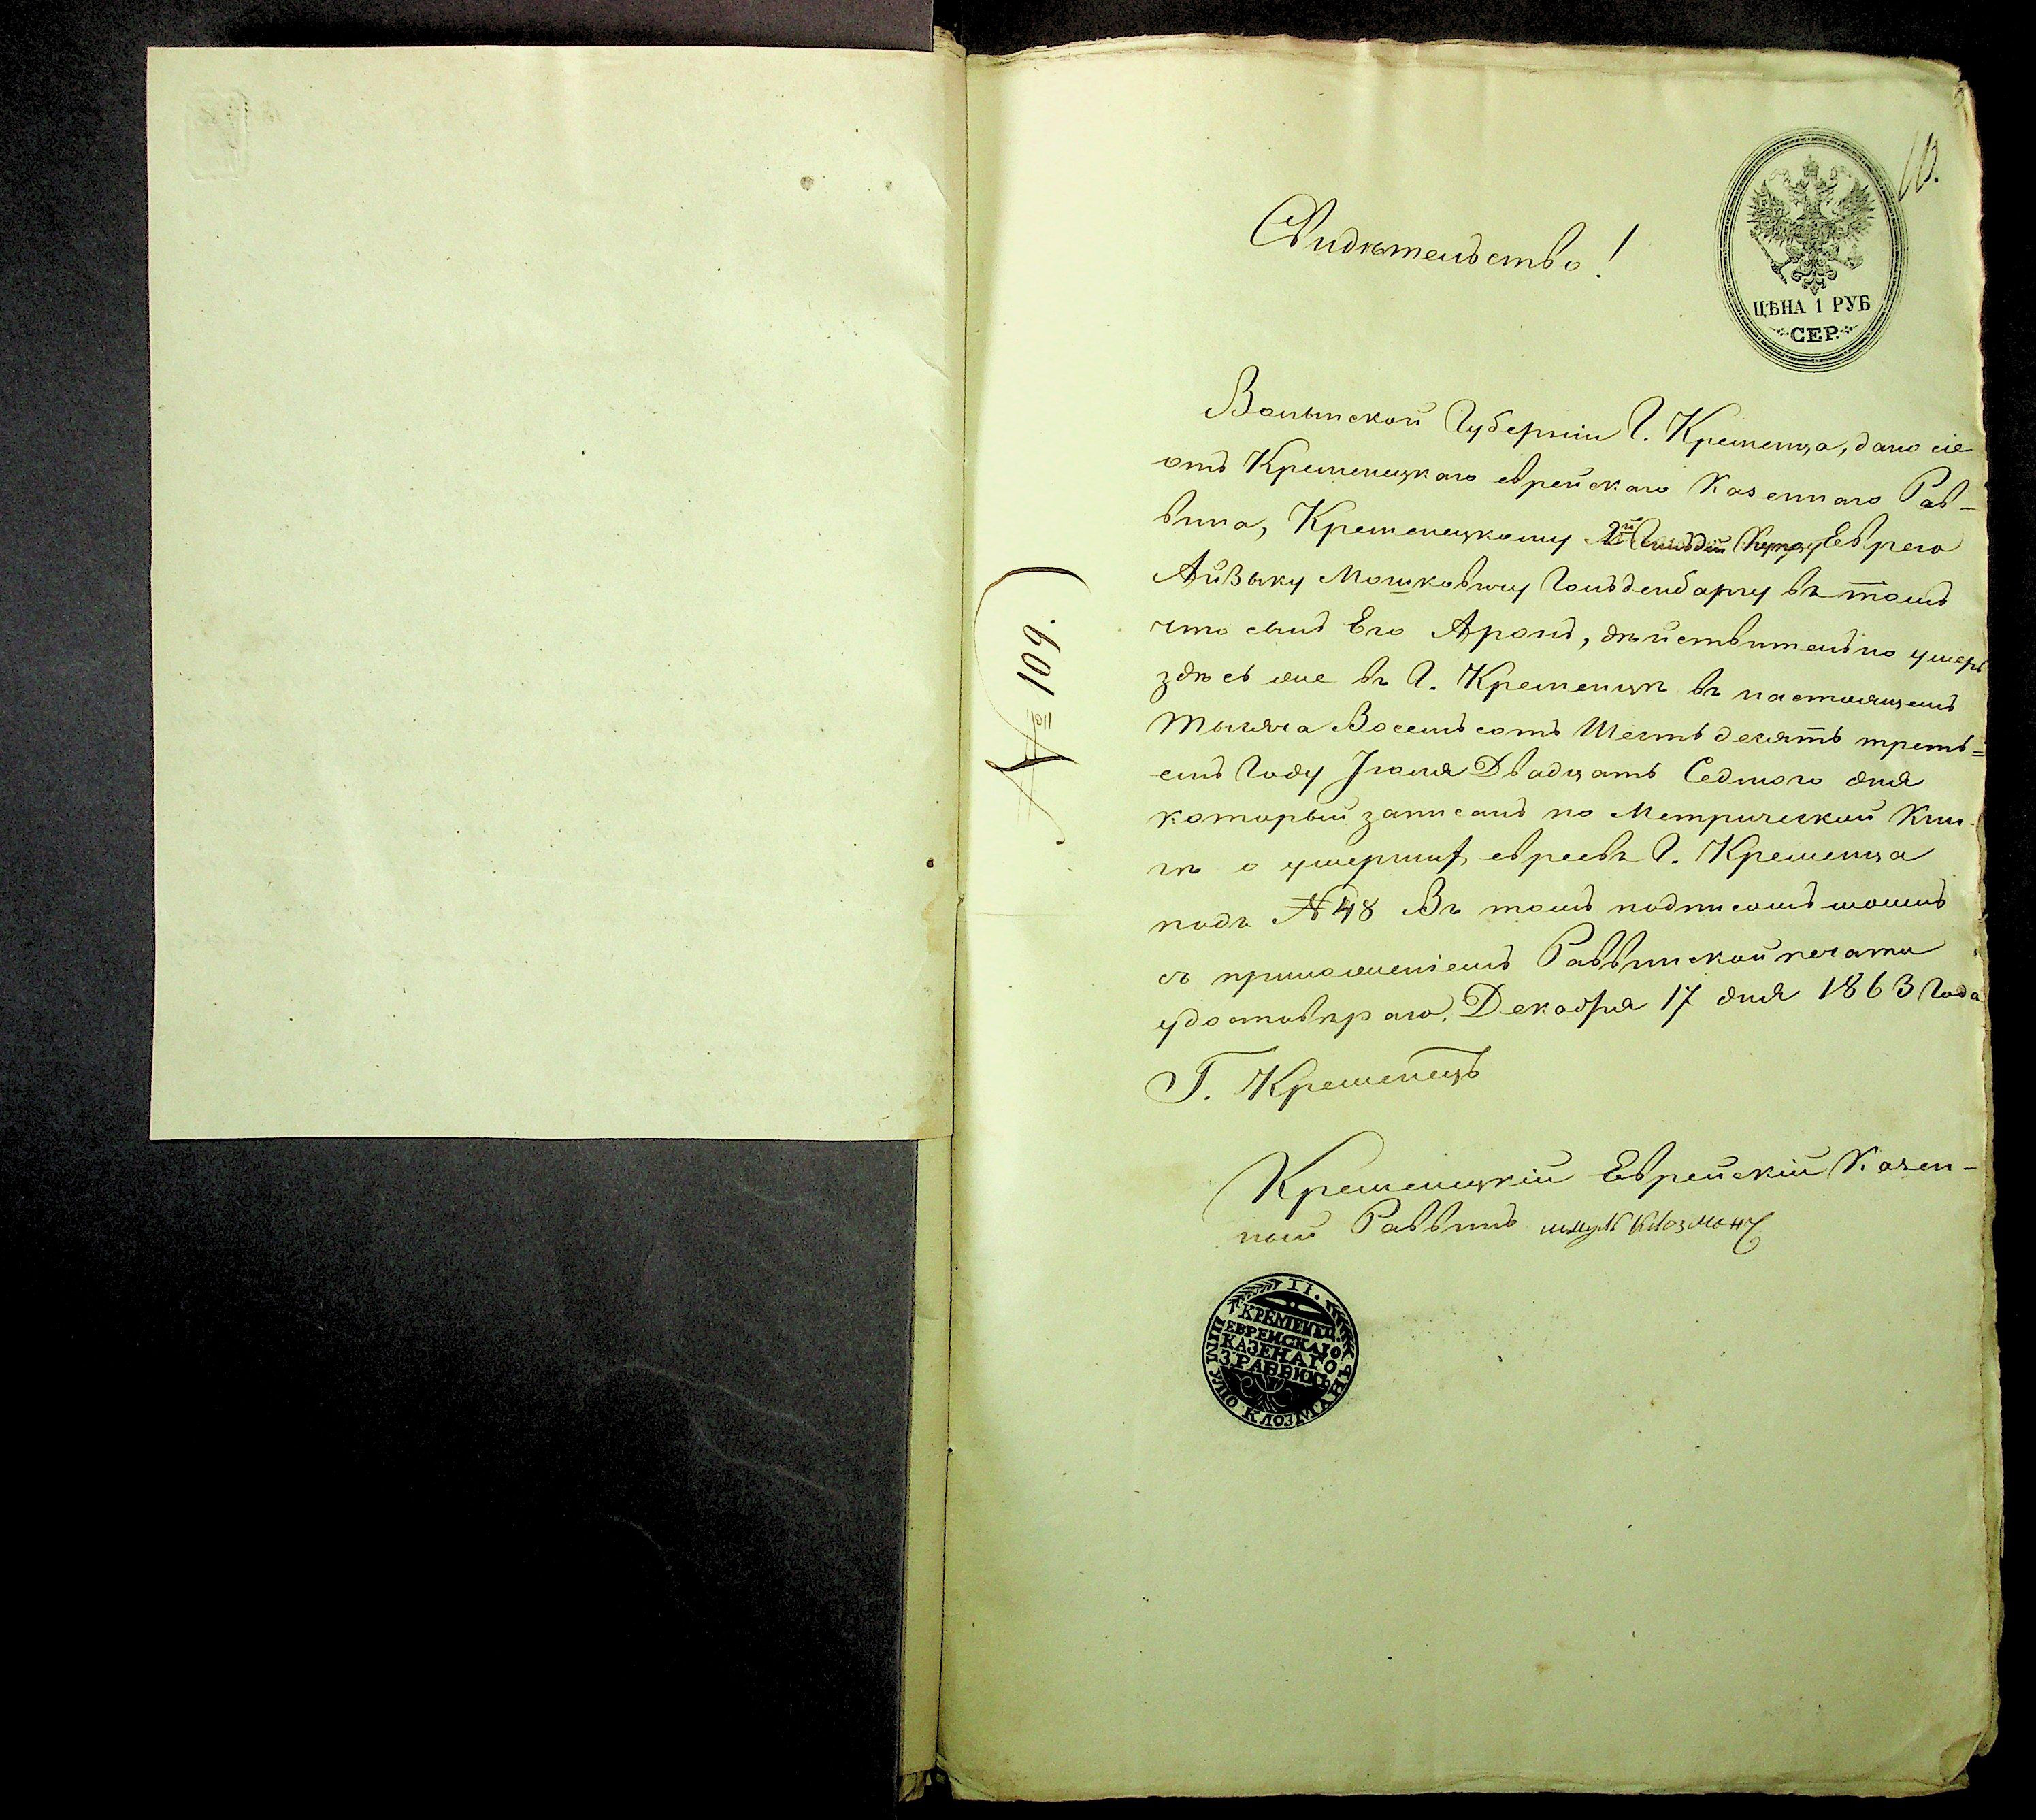 10.
Свидѣтельство!
ЦѢНА 1 РУБ
СЕР.
Волынской Губерніи Г. Кременца, дано сіе
отъ Кременецкаго еврейскаго Казеннаго Рав-
вина, Кременецкому 2й Гильдіи Купцу Еврею
Айзыку Мошковичу Гольденбаргу въ томъ
что сынъ Его Аронъ, дѣйствительно умеръ
здѣсь же въ Г. Кременцѣ въ настоящемъ
Тысяча Восемьсотъ Шестьдесятъ треть=
емъ Году Іюля Двадцать Седмого дня
который записанъ по Метрической Кни-
гѣ о умершихъ евреевъ Г. Кременца
подъ № 48 Въ томъ подписомъ моимъ
съ приложеніемъ Раввинской печати
удостовѣраю. Декабря 17 дня 1863 Года
Г. Кременецъ
Кременецкій Еврейскій Казен-
ный Раввинъ шмуль Клозманъ
№ 109.
П.
Г. КРЕМЕНЕЦ.
ЕВРЕИСКАГО
КАЗЕНАГО
РАВВИНЪ
КЛОЗМАНЪ